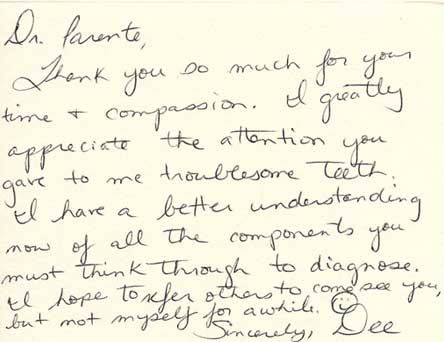 Dr. Parente,
Thank you so much for your
time + compassion. I greatly
appreciate the attention you
gave to me troublesome teeth.
I have a better understanding
now of all the components you
must think through to diagnose.
I hope to refer others to come see you,
but not myself for awhile. ☺
Sincerely, Dee